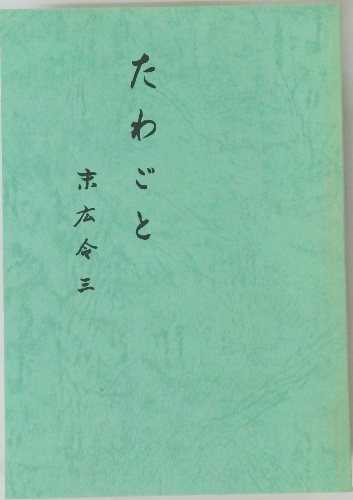 たわごと
末広令三